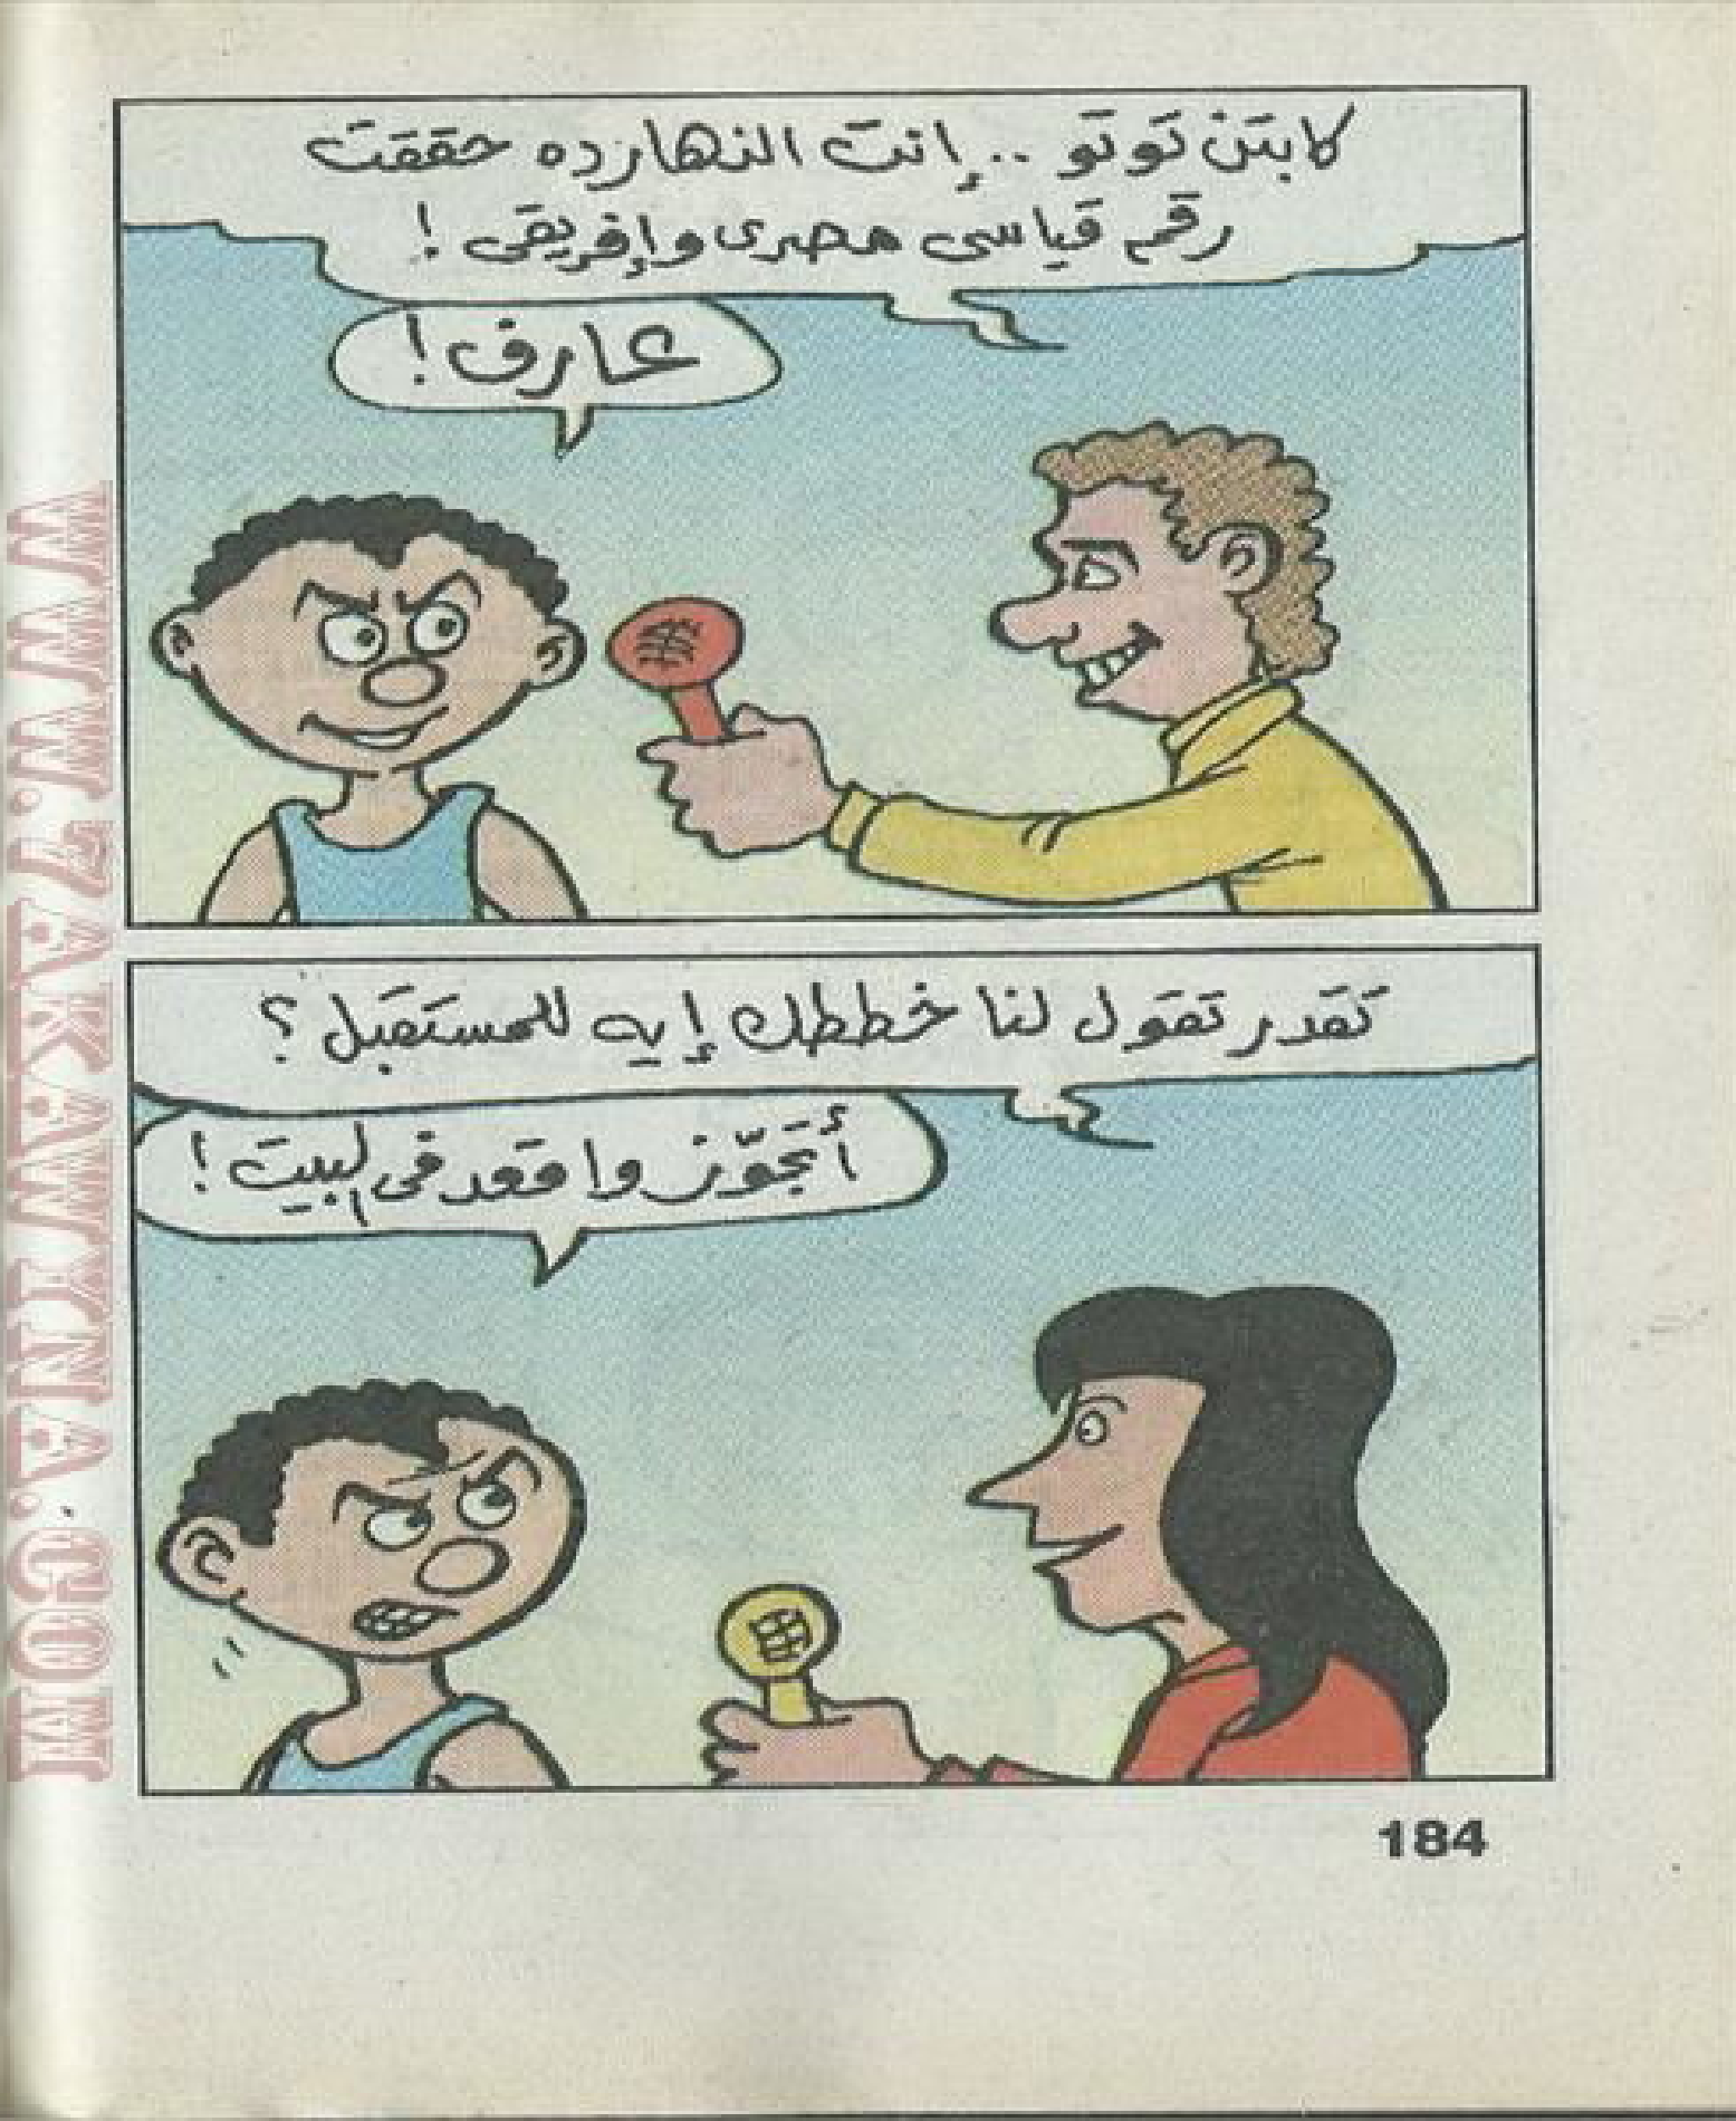 كابتن توتو .. إنت النهارده حققت
رقم قياسى مصرى وإفريقى !
عارف !
تقدر تقول لنا خططك إيه للمستقبل ؟
أتجوّز واقعد فى البيت !
184
WWW.7AKAWITNA.COM